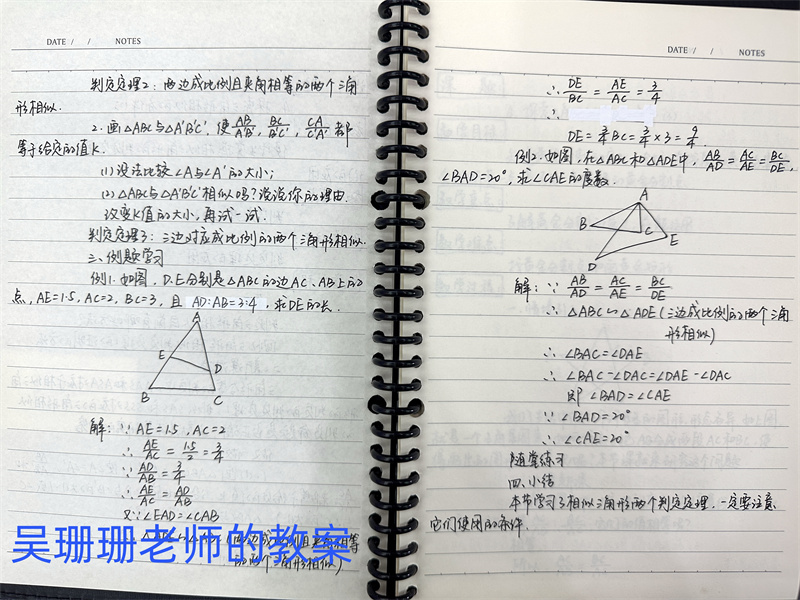 DATE / / NOTES
判定定理2：两边成比例且夹角相等的两个三角
形相似.
2.画△ABC与△A'B'C'，使AB/A'B', BC/B'C', CA/C'A'都
等于给定的值k.
(1)设法比较∠A与∠A'的大小；
(2)△ABC与△A'B'C'相似吗？说说你的理由.
改变k值的大小，再试一试.
判定定理3：三边对应成比例的两个三角形相似.
三、例题学习
例1.如图，D.E分别是△ABC的边AC、AB上的
点，AE=1.5，AC=2，BC=3，且 AD:AB=3:4，求DE的长.
A
E
D
B
C
解：∵ AE=1.5，AC=2
∴ AE/AC = 1.5/2 = 3/4
∵ AD/AB = 3/4
∴ AE/AC = AD/AB
又∵∠EAD=∠CAB
吴珊珊老师的教案
的两个三角形相似)
DATE / / NOTES
∴ DE/BC = AE/AC = 3/4
∴
DE=3/4BC=3/4×3=9/4.
例2.如图，在△ABC和△ADE中，AB/AD=AC/AE=BC/DE，
∠BAD=20°，求∠CAE的度数.
A
B
C
E
D
解：∵ AB/AD = AC/AE = BC/DE
∴ △ABC∽△ADE(三边成比例的两个三角
形相似)
∴ ∠BAC=∠DAE
∴ ∠BAC-∠DAC=∠DAE-∠DAC
即 ∠BAD=∠CAE
∵ ∠BAD=20°
∴ ∠CAE=20°
随堂练习
四.小结
本节学习了相似三角形两个判定定理，一定要注意
它们使用的条件.